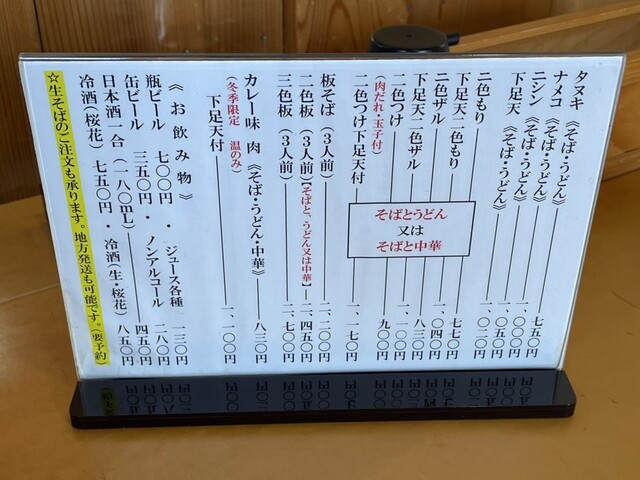 タヌキ《そば・うどん》 七五〇円
ナメコ《そば・うどん》 一、〇〇〇円
ニシン《そば・うどん》 一、〇五〇円
下足天《そば・うどん》 一、〇二〇円
二色もり 七七〇円
下足天二色もり 一、〇四〇円
二色ザル 八三〇円
下足天二色ザル 一、一〇〇円
二色つけ 九〇〇円
(肉だれ・玉子付)
二色つけ下足天付 一、一七〇円
そばとうどん
又は
そばと中華
板そば(3人前) 二、二〇〇円
二色板(3人前)【そばと、うどん又は中華】 二、四五〇円
三色板(3人前) 二、七〇〇円
カレー味 肉《そば・うどん・中華》 八三〇円
(冬季限定 温のみ)
下足天付 一、一〇〇円
《お飲み物》
瓶ビール 七〇〇円・ジュース各種 一三〇円
缶ビール 三五〇円・ノンアルコール 二八〇円
日本酒一合(一八〇mL) 四五〇円
冷酒(桜花) 七五〇円・冷酒(生・桜花) 八五〇円
☆生そばのご注文も承ります。地方発送も可能です。(要予約)